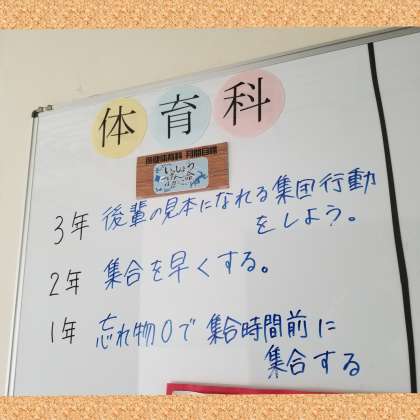 体育科
月間目標
いっしょう
3年 後輩の見本になれる集団行動
をしよう。
2年 集合を早くする。
1年 忘れ物0で集合時間前に
集合する